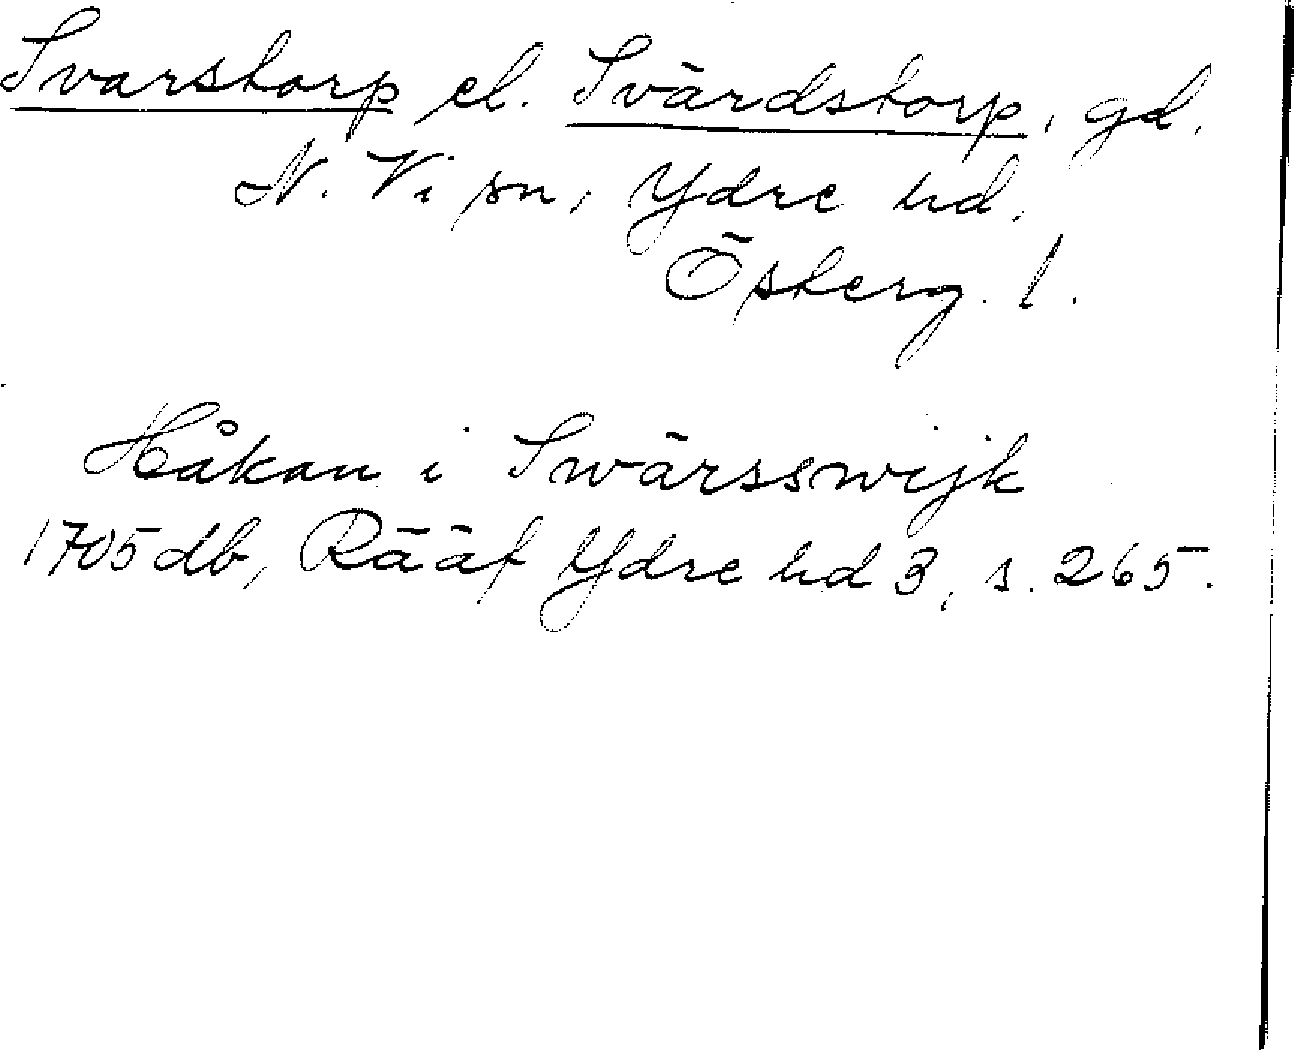 Svarstorp el. Svärdstorp, gd.
N. Vi sn, Ydre hd.
Österg. l.
Håkan i Swärsswijk
1705 db, Rääf Ydre hd 3, s. 265.